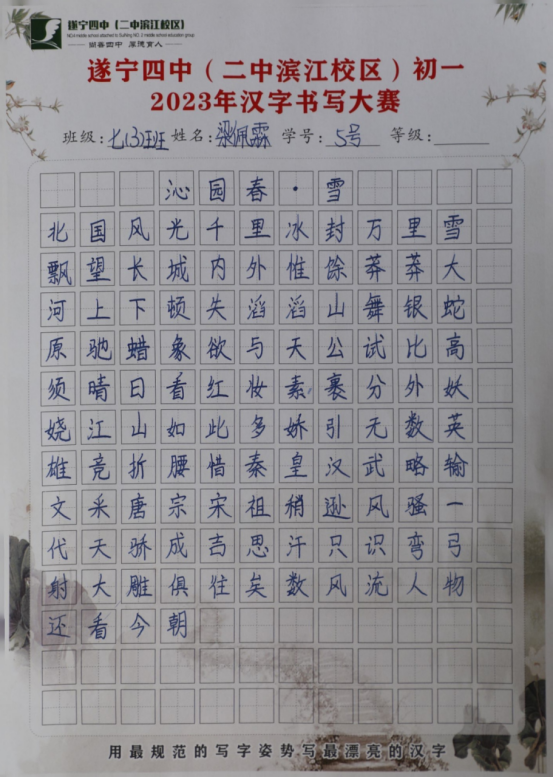 遂宁四中（二中滨江校区）
尚善四中 厚德育人
遂宁四中（二中滨江校区）初一
2023年汉字书写大赛
班级：七(3)班班 姓名：梁佩霖 学号：5号 等级：
沁园春·雪
北国风光千里冰封万里雪
飘望长城内外惟馀莽莽大
河上下顿失滔滔山舞银蛇
原驰蜡象欲与天公试比高
须晴日看红妆素裹分外妖
娆江山如此多娇引无数英
雄竞折腰惜秦皇汉武略输
文采唐宗宋祖稍逊风骚一
代天骄成吉思汗只识弯弓
射大雕俱往矣数风流人物
还看今朝
用最规范的写字姿势写最漂亮的汉字